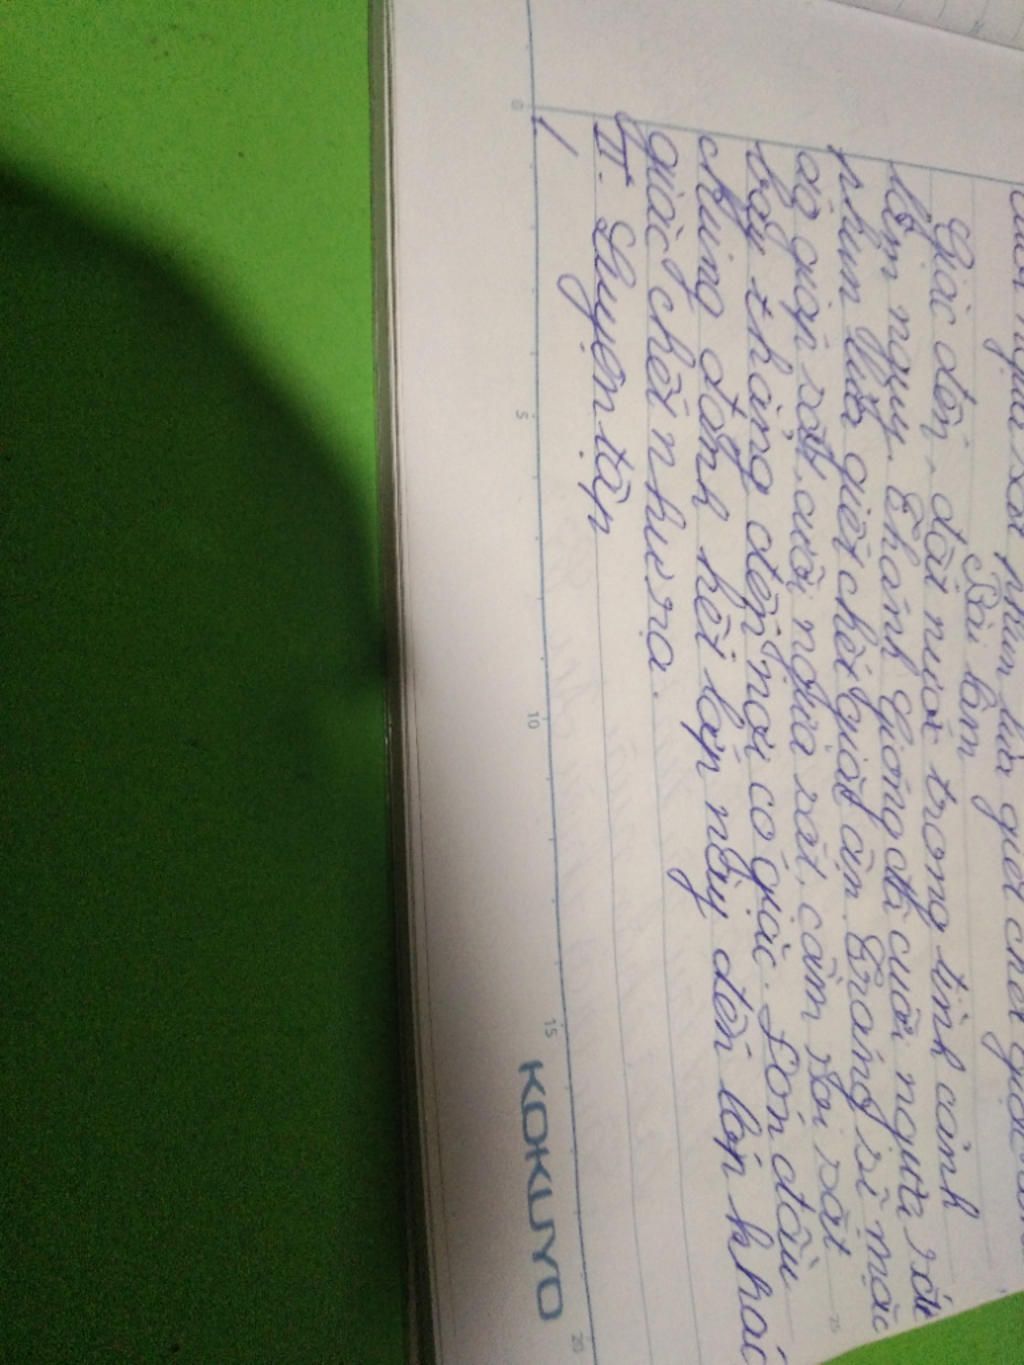 phun lửa giết chết giặc
Bài làm
Giặc đến, đất nước trong tình cảnh
lâm nguy. Thánh Gióng đã cưỡi ngựa sắt
phun lửa giết chết giặc ân. Tráng sĩ mặc
áo giáp sắt, cưỡi ngựa sắt, cầm roi sắt
bay thẳng đến nơi có giặc. Đón đầu
chúng đánh hết lớp này đến lớp khác
giặc chết như rạ.
II. Luyện tập
1
0 5 10 15 20
KOKUYO
25